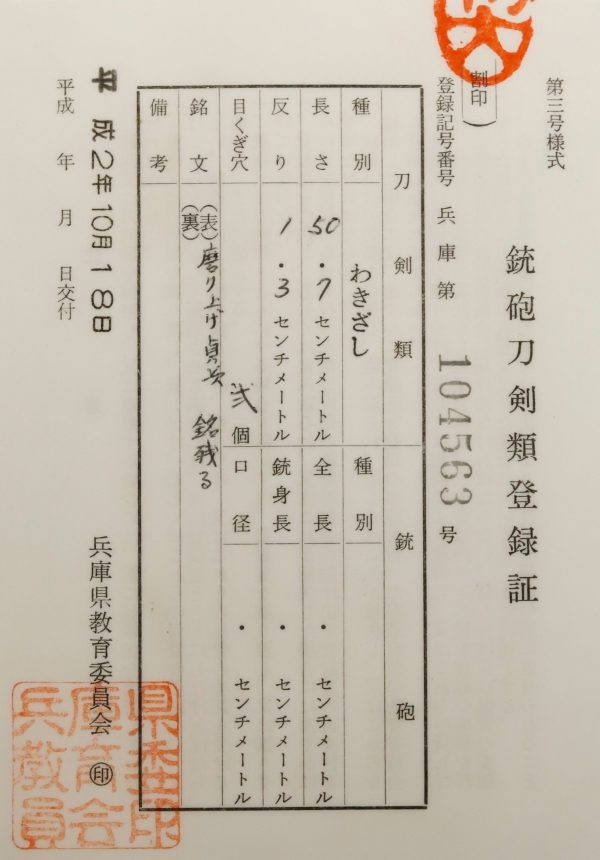 第三号様式
銃砲刀剣類登録証
(割印)
登録記号番号 兵庫第 104563 号
刀剣類 銃砲
種別 わきざし 種別
長さ 50.7センチメートル 全長 ・ センチメートル
反り 1.3センチメートル 銃身長 ・ センチメートル
目くぎ穴 弐 個 口径 ・ センチメートル
銘文 (表)(裏) 磨り上げ 貞 銘残る
備考
平成2年10月18日
平成 年 月 日交付
兵庫県教育委員会 ㊞
兵庫県教育委員会印